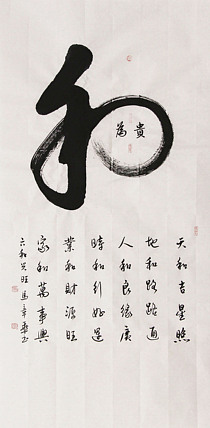 和
為貴
天和吉星照
地和路路通
人和良緣廣
時和引好運
業和財源旺
家和萬事興
六和兴旺